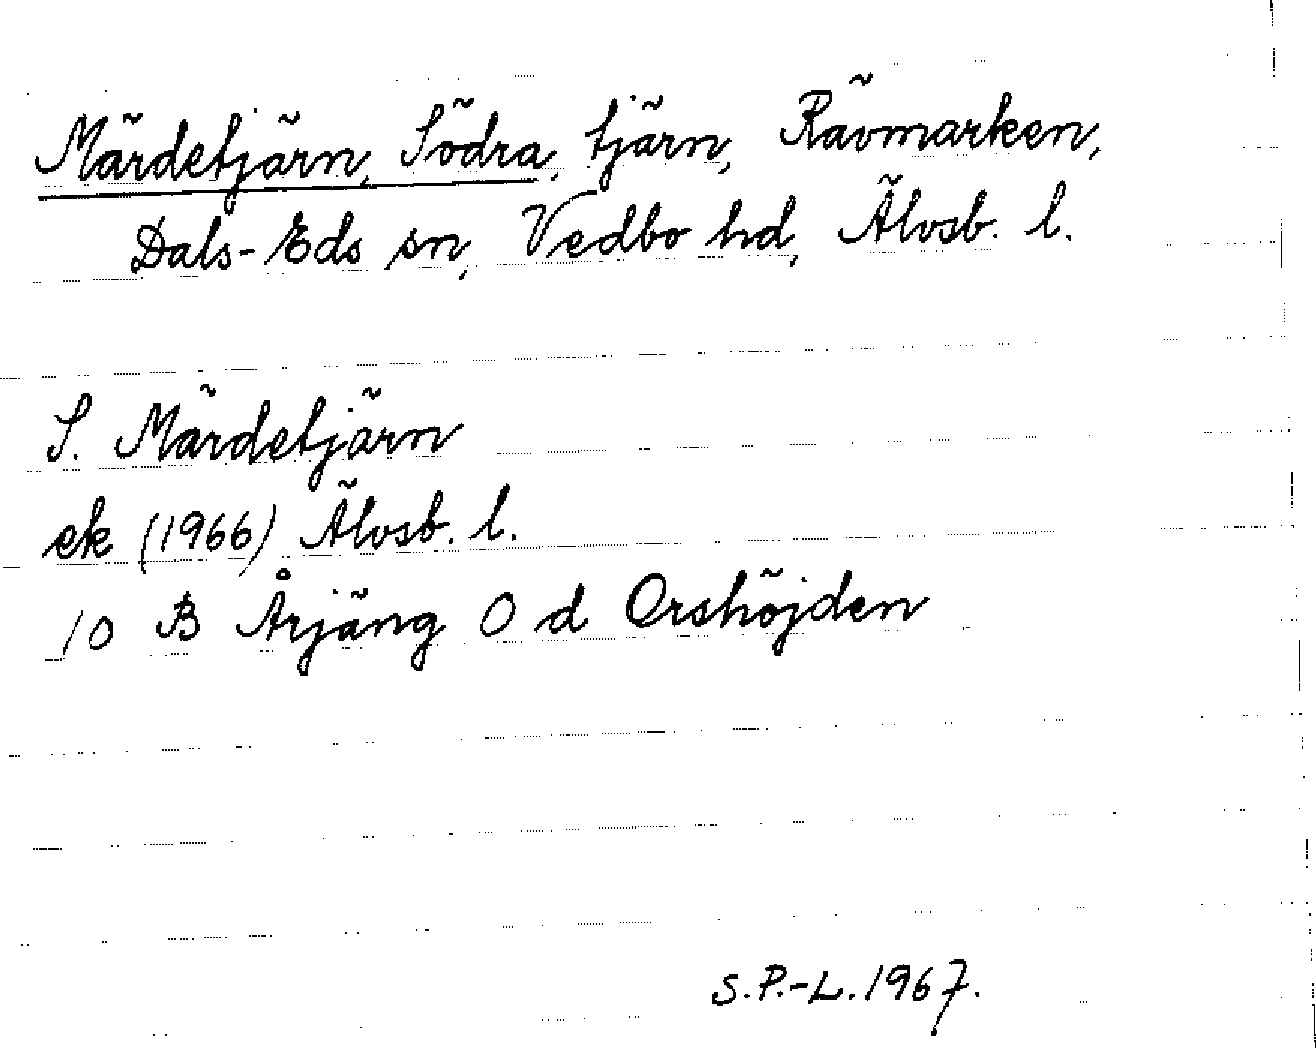 Märdetjärn, Södra, tjärn, Rävmarken,
Dals-Eds sn, Vedbo hd, Älvsb. l.
S. Märdetjärn
ek (1966) Älvsb. l.
10 B Årjäng 0 d Orshöjden
S.P.-L. 1967.